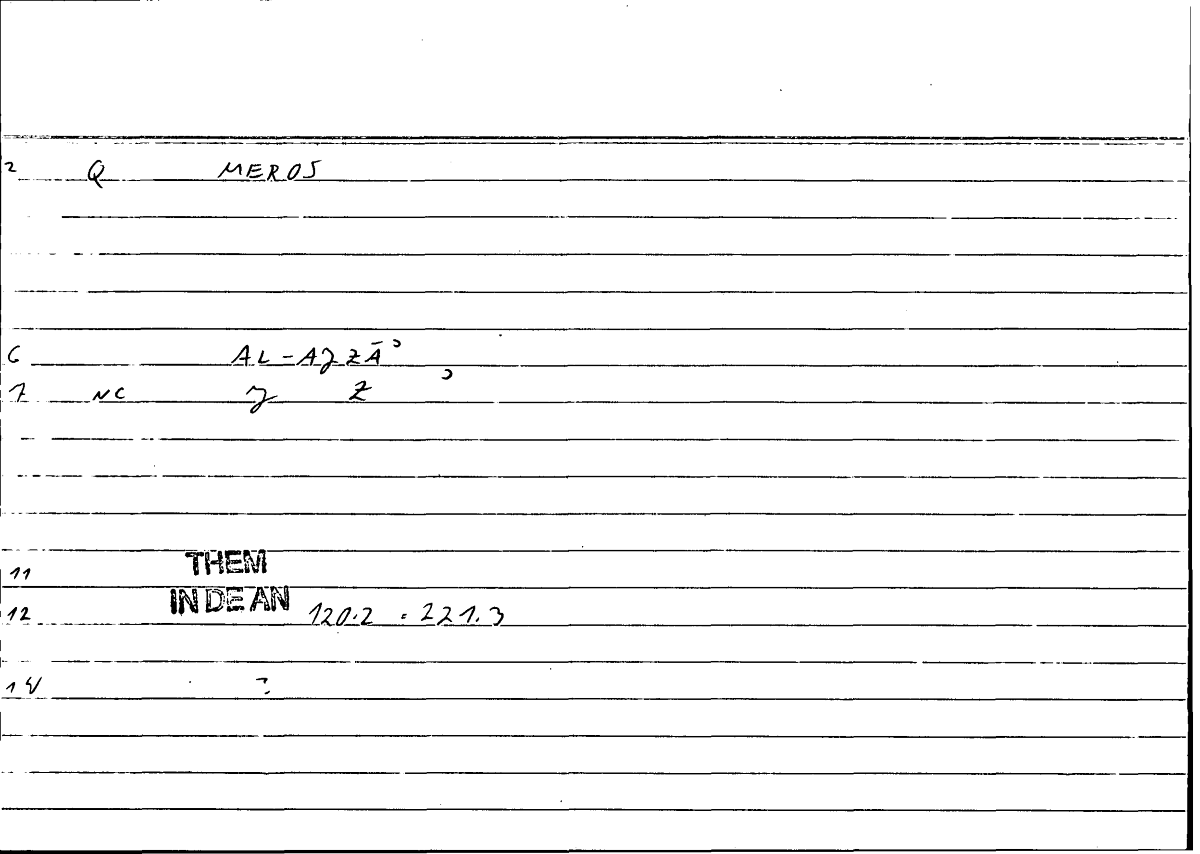 2 Q MEROS
6 AL-AJZĀʾ
7 NC J Z ʾ
11 THEM
12 IN DE AN 120.2 = 221.3
14 ?